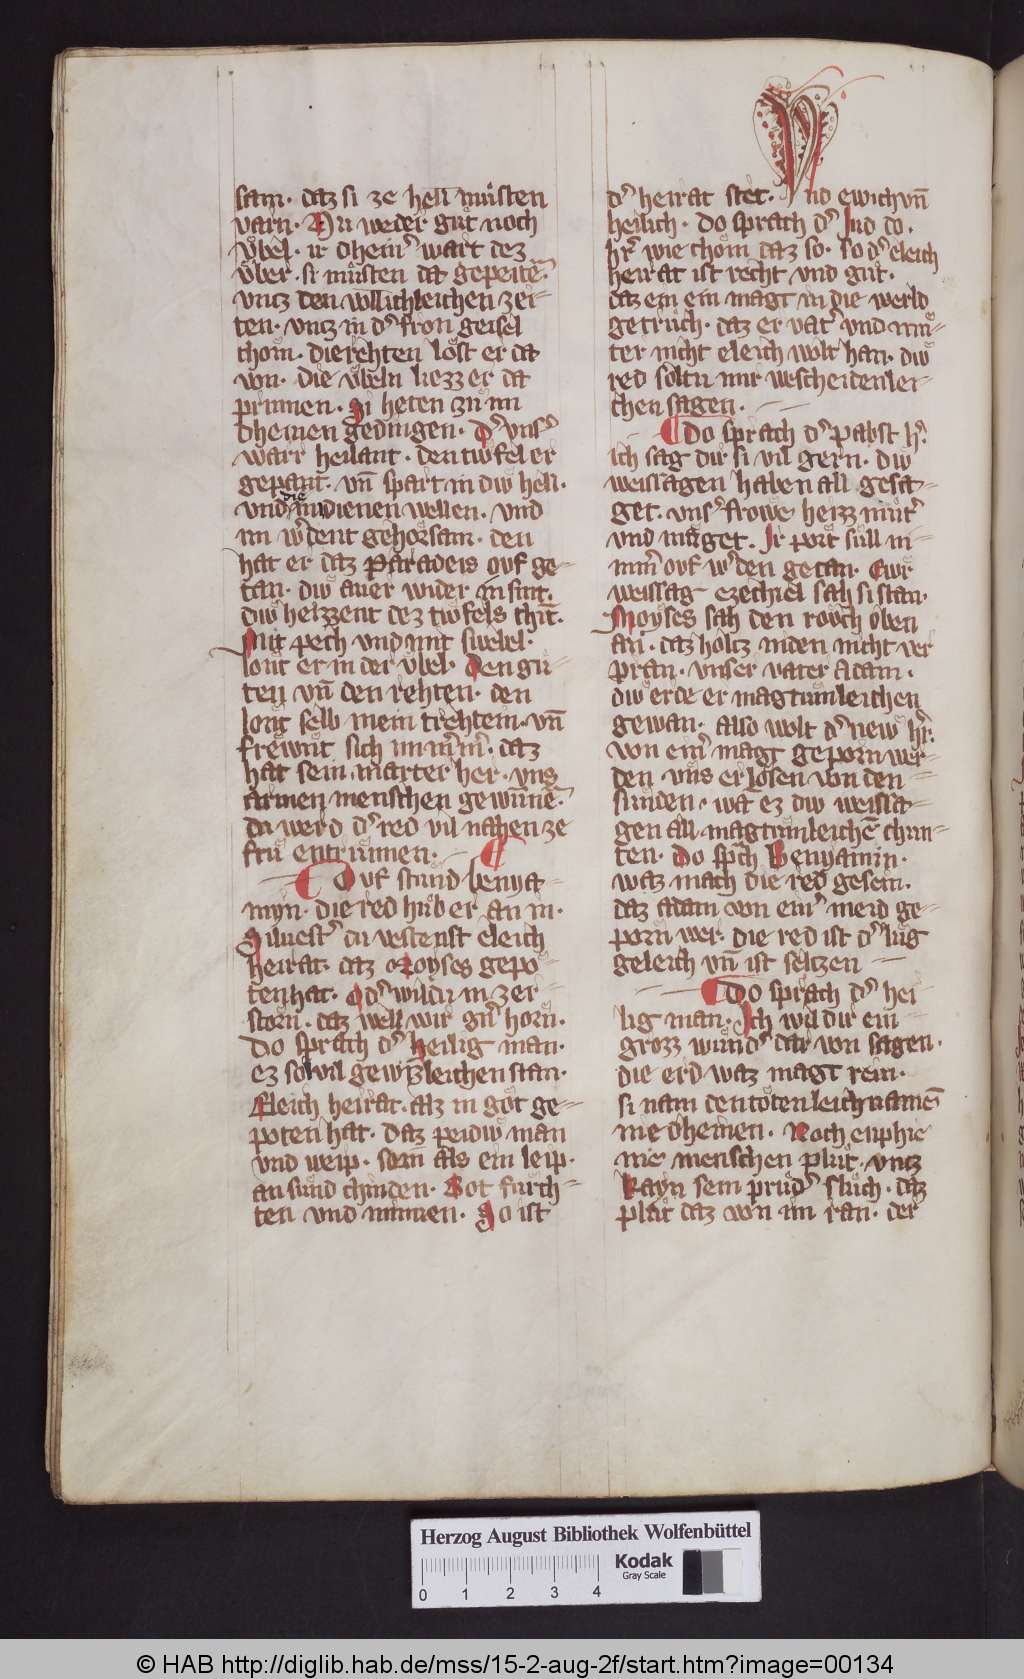 sam· daz si ze hell müsten
varn· Nu weder güt noch
v̊bel· ir dheinˀ wart dez
v̊ber· si müsten da gepeitē·
vntz den wllichleichen zei-
ten· vntz in dˀ fron geisel
chom· die rehten lost er da
von· die v̊beln liezz er da
prinnen· Si heten zu im
dheinen gedingen· Dˀ vnsˀ
warr heilant· den tiwfel er
gepant· vn̄ spart in diw hell·
vnd die
im dienen wellen· vnd
im wˀdent gehorsam· den
hat er daz paradeis ouf ge-
tan· diw auer wider in sint·
diw heizzent dez tiwfels chīt·
Mit pech vnd mit swebel·
lont er in der v̊bel· Den gü-
ten vn̄ den rehten· den
lont selb mein trehtein· vn̄
frewnt sich im̄ mˀ· daz
hat sein marter her· vns
armen menschen gewunnē·
du werd dˀ red vil nahen ze
fru entrunnen·
Ouf stund benya-
myn· die red hüb er an in·
Siluestˀ du vestenst eleich
heirat· daz Moyses gepo-
ten hat· Odˀ wildu in zer-
storn· daz well wir gˀn horn·
Do sprach dˀ heilig man·
ez sol vil gewizleichen stan·
Eleich heirat· alz in got ge-
poten hat· daz peidiw man
vnd weip· sorn als ein leip·
an sund chinden· Got fürch-
ten vnd minnen· So ist
dˀ heirat stet· Vnd ewich vn̄
heilich· Do sprach dˀ Jud do·
hˀr wie chom daz so· so dˀ eleich
heirat ist recht vnd gut·
daz ein ein magt in die werld
getruch· daz er vatˀ vnd mü-
ter nicht eleich wolt han· diw
red soltu mir wescheidenlei-
chen sagen·
Do sprach dˀ Pabst hˀr·
ich sag dir si vil gern· diw
weissagen haben all gesa-
get· vnsˀ frowe heizz mütˀ
vnd maget· Ir port süll ni-
mmˀ ouf wˀden getan· Ewr
weissag ezechiel sah si stan·
Moyses sah den rouch oben
an· daz holtz inden nicht ver
pran· vnser vater Adam·
diw erde er magtumleichen
gewan· also wolt dˀ new hˀr·
von einˀ magt geporn wer-
den vns erlosen von den
sunden· wā ez diw weissa-
gen all magtumleichē chun-
ten· Do spch̄ Benyamin·
waz mach die red gesein·
daz adam von einˀ meid ge-
porn wer· die red ist dˀ lug
geleich vn̄ ist seltzen
Do sprach dˀ hei-
lig man· Ich wil dir ein
grozz wundˀ dar von sagen·
die erd waz magt rein·
si nam den toten leichnamē
nie dheinen· Noch enphie
nie menschen plüt· vntz
Kayn sein prudˀ slüch· daz
plüt daz von im ran· der
Herzog August Bibliothek Wolfenbüttel
Kodak
Gray Scale
0 1 2 3 4
© HAB http://diglib.hab.de/mss/15-2-aug-2f/start.htm?image=00134